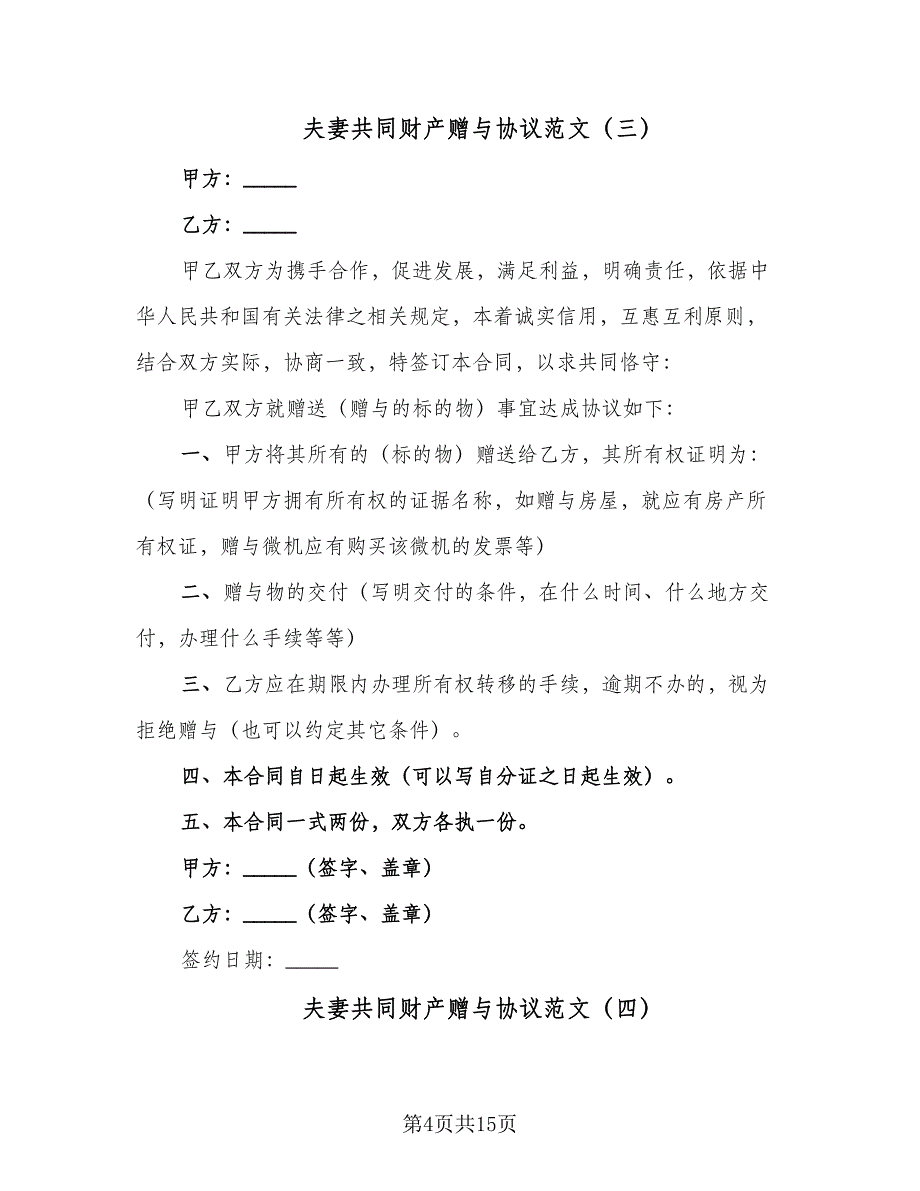 夫妻共同财产赠与协议范文（三）
甲方：_____
乙方：_____
甲乙双方为携手合作，促进发展，满足利益，明确责任，依据中
华人民共和国有关法律之相关规定，本着诚实信用，互惠互利原则，
结合双方实际，协商一致，特签订本合同，以求共同恪守：
甲乙双方就赠送（赠与的标的物）事宜达成协议如下：
一、甲方将其所有的（标的物）赠送给乙方，其所有权证明为：
（写明证明甲方拥有所有权的证据名称，如赠与房屋，就应有房产所
有权证，赠与微机应有购买该微机的发票等）
二、赠与物的交付（写明交付的条件，在什么时间、什么地方交
付，办理什么手续等等）
三、乙方应在期限内办理所有权转移的手续，逾期不办的，视为
拒绝赠与（也可以约定其它条件）。
四、本合同自日起生效（可以写自分证之日起生效）。
五、本合同一式两份，双方各执一份。
甲方：_____（签字、盖章）
乙方：_____（签字、盖章）
签约日期：_____
夫妻共同财产赠与协议范文（四）
第4页共15页